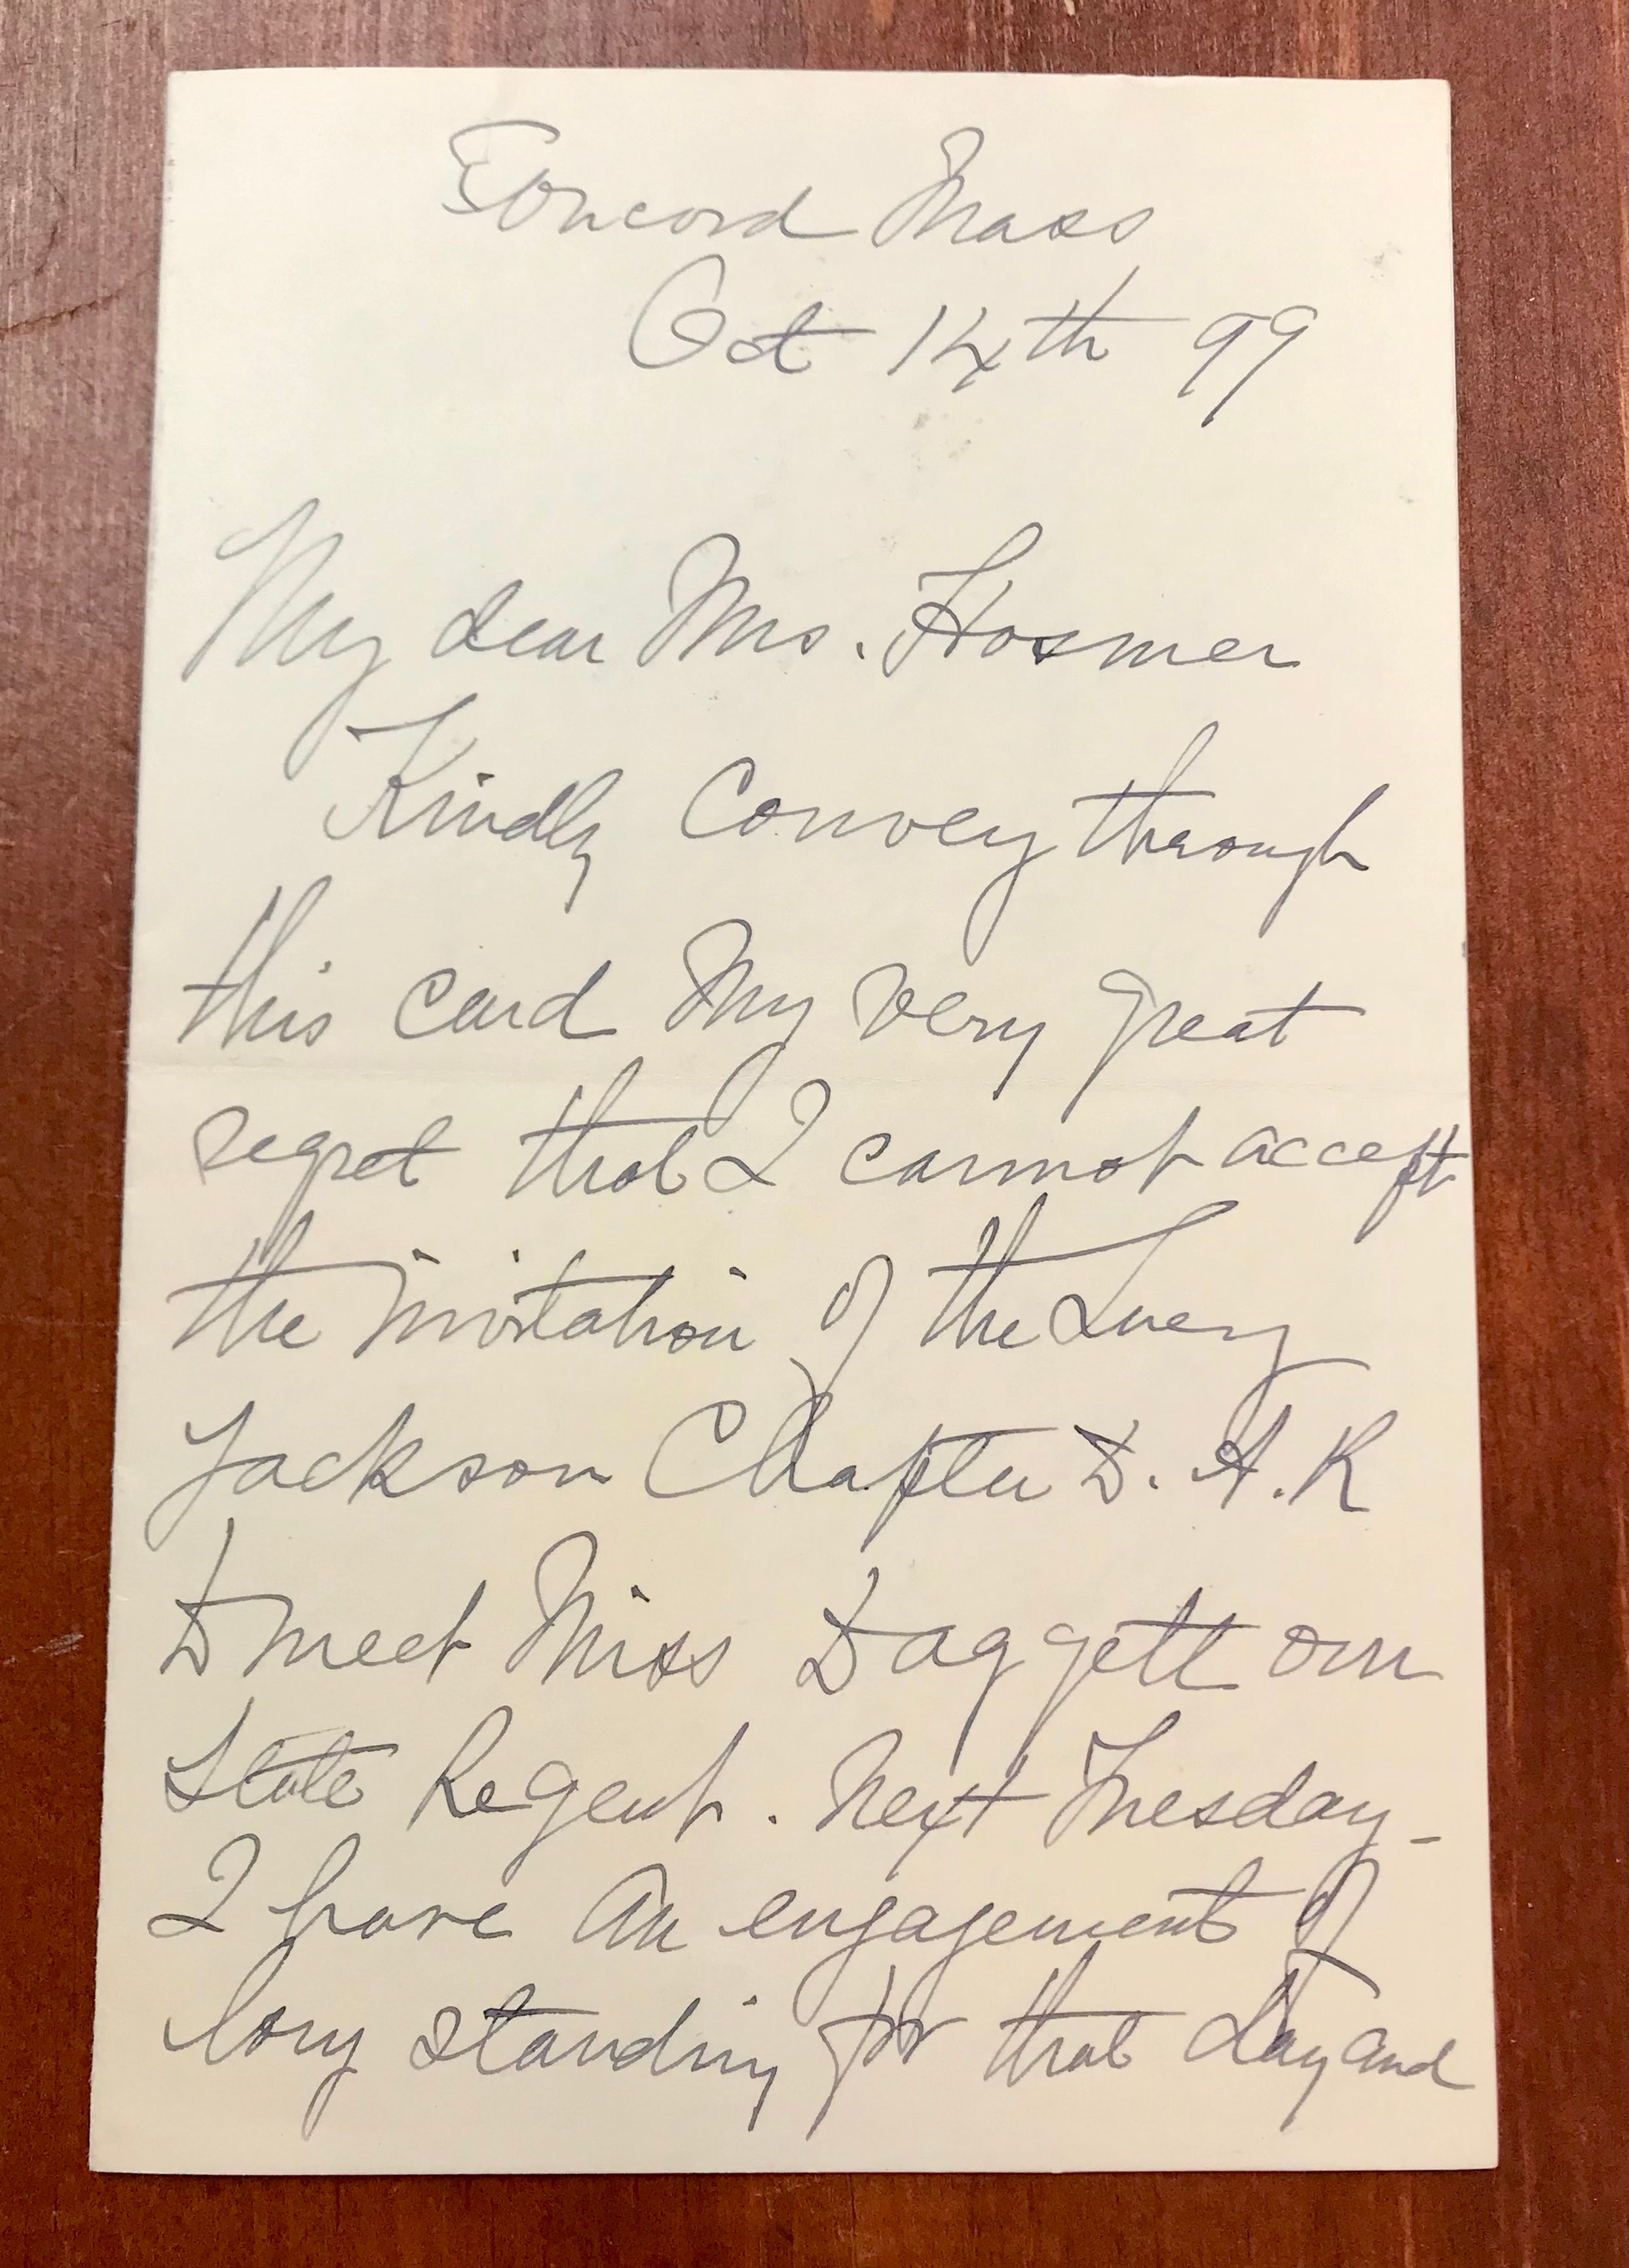 Concord Mass
Oct 14th 99
My dear Mrs. Hosmer
Kindly Convey through
this card My very great
regret that I cannot accept
the invitation of the Lucy
Jackson Chapter D. A. R
to meet Miss Daggett our
State Regent. Next Tuesday -
I have an engagement of
long standing for that day and